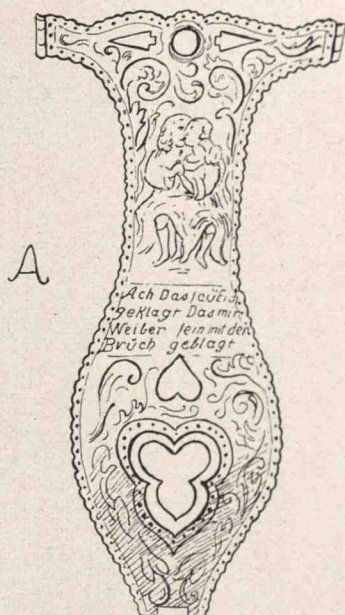 A
Ach Das
geklagt Das mir
Weiber ſein mit den
Brüch geblagt